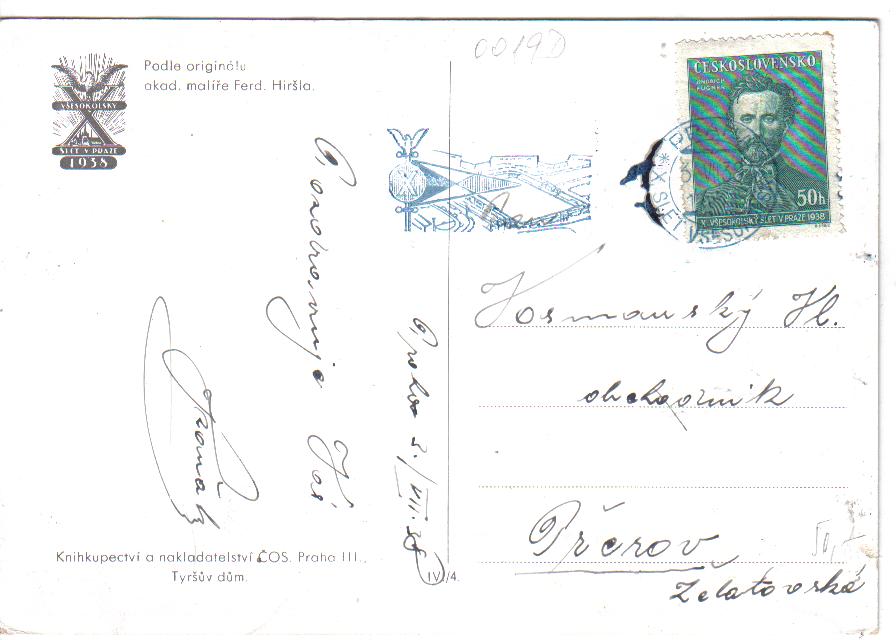 0019D
Podle originálu
akad. malíře Ferd. Hiršla.
VŠESOKOLSKÝ
X
SLET V PRAZE
1938
ČESKOSLOVENSKO
JINDŘICH
FÜGNER
50h
X. VŠESOKOLSKÝ SLET V PRAZE 1938
X. SLET VŠESOKOL
Pozdravuje Vás
Praha 3./VII. 38
Vosmanský Vl.
obchodník
Přerov
Želatovská
Knihkupectví a nakladatelství ČOS. Praha III.,
Tyršův dům.
IV/4.